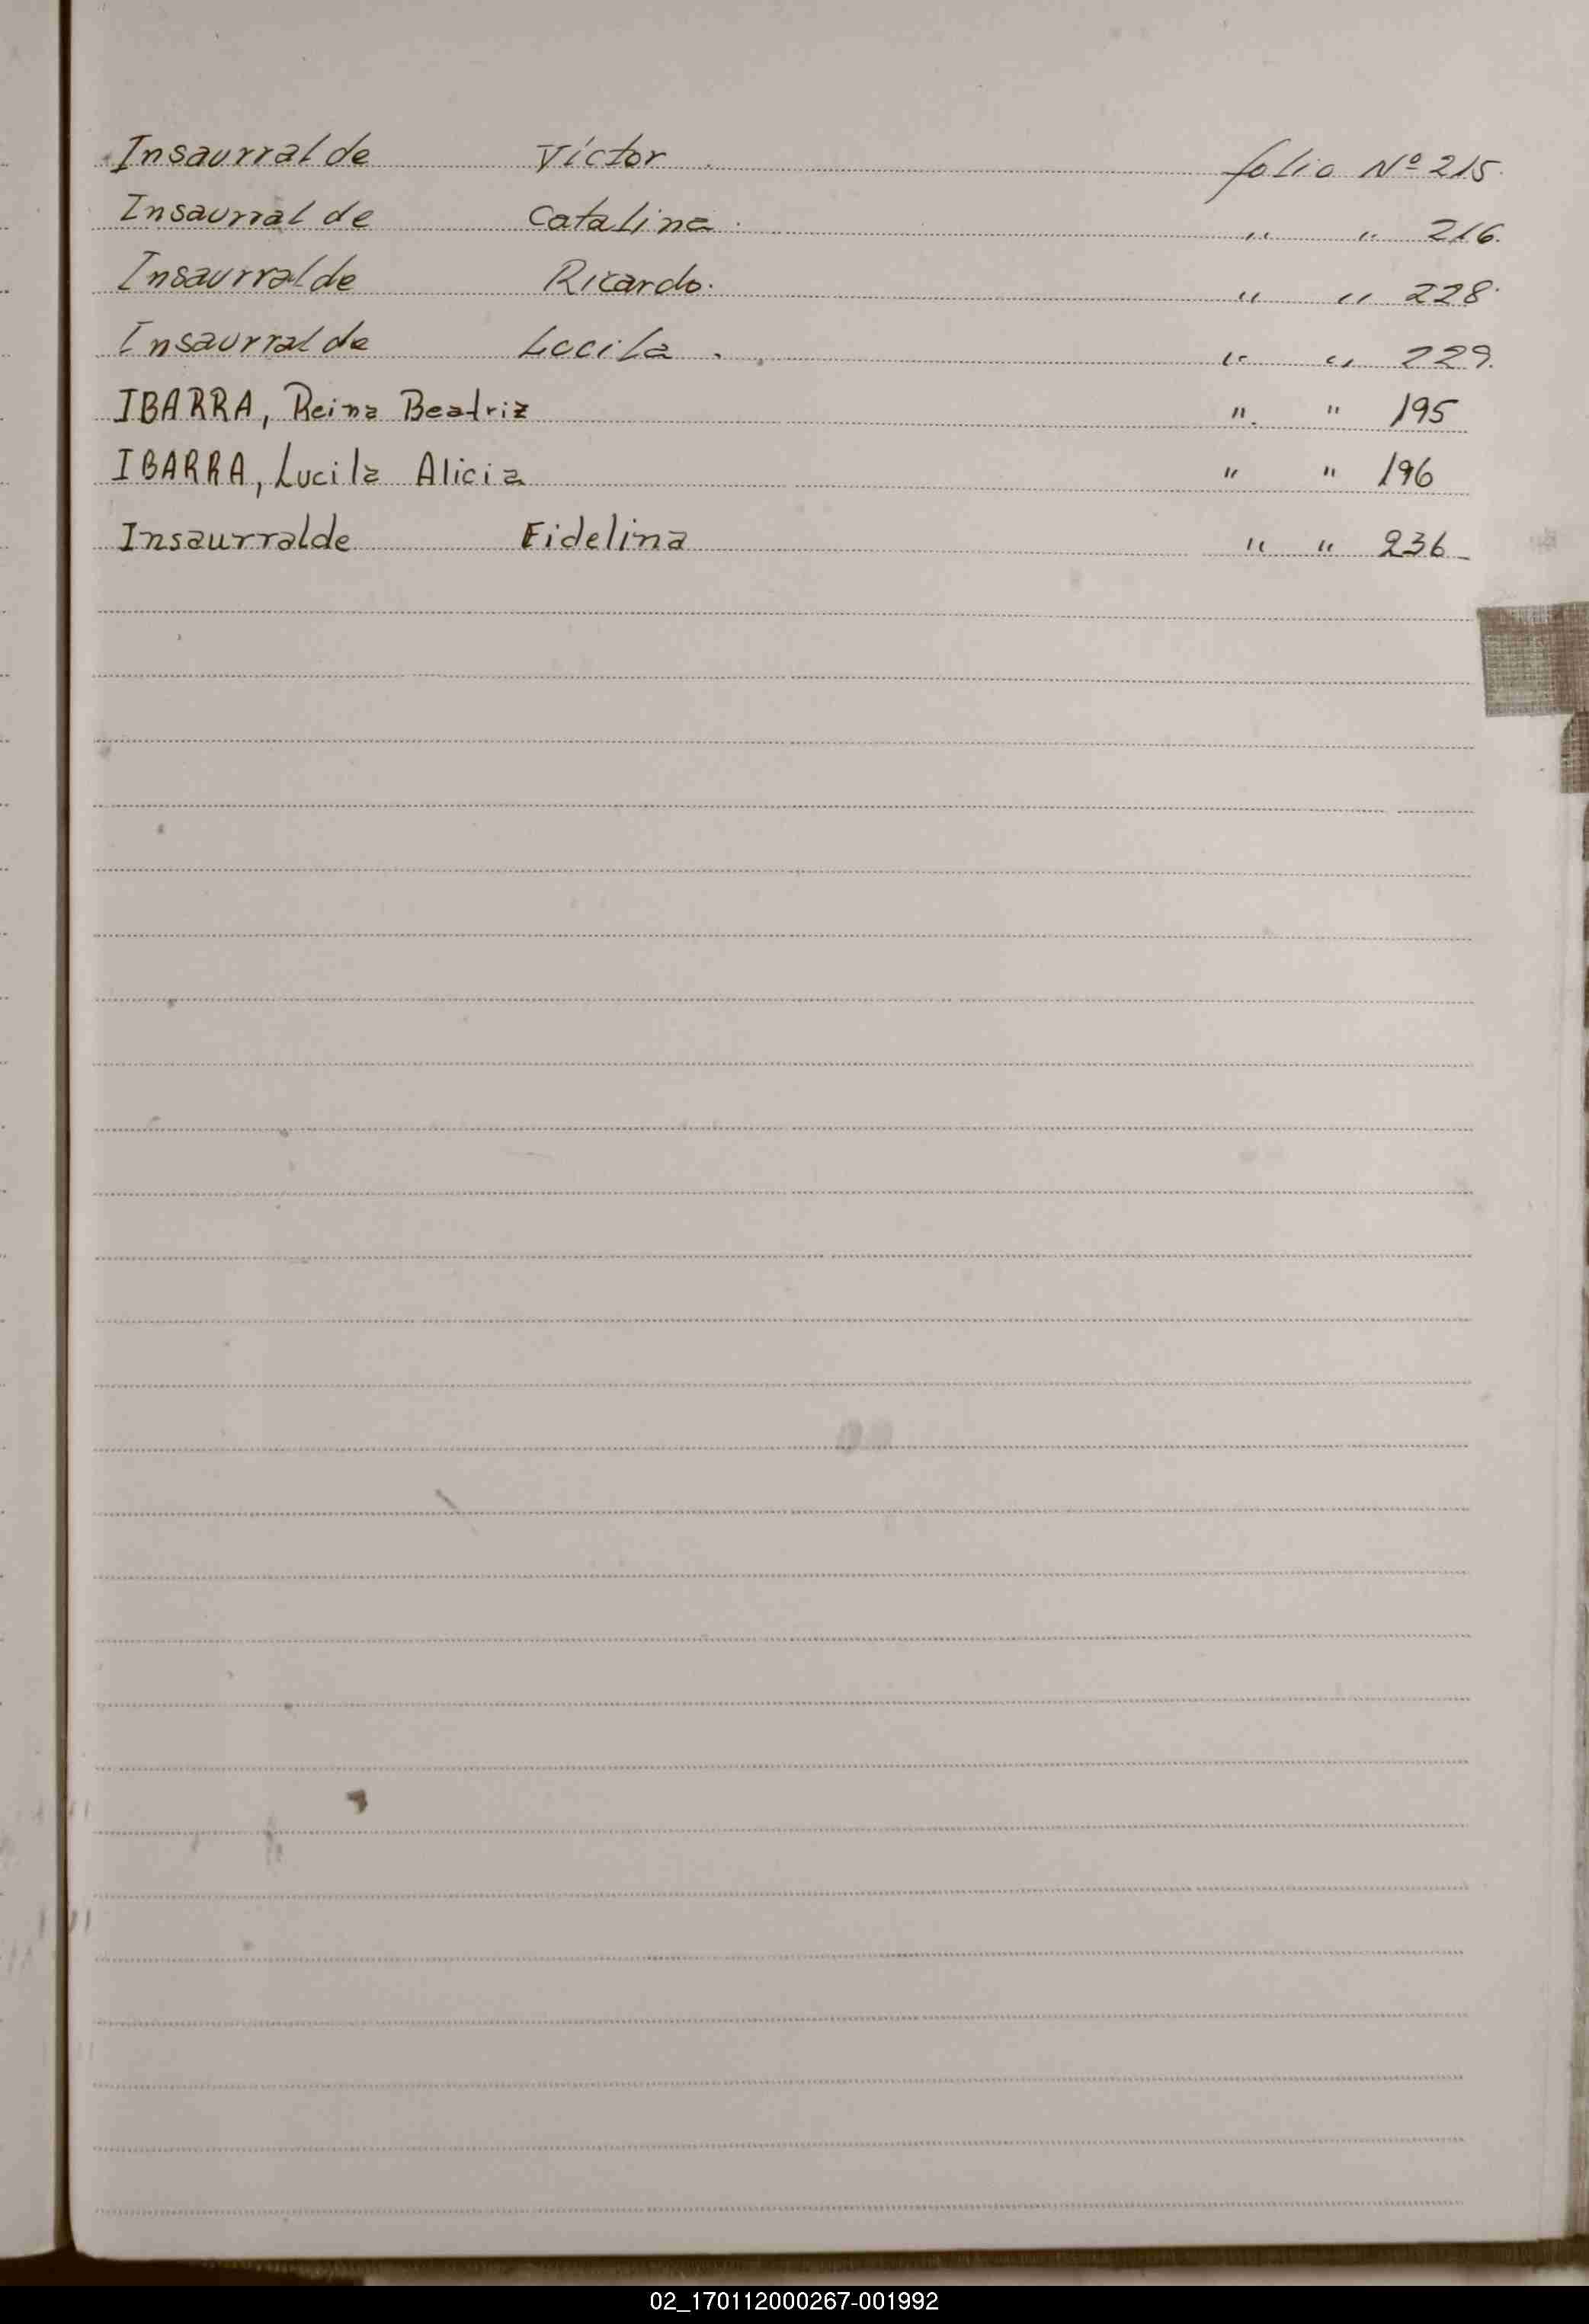 Insaurralde Víctor. folio Nº 215.
Insaurralde Catalina. " " 216.
Insaurralde Ricardo. " " 228.
Insaurralde Lucila. " " 229.
IBARRA, Reina Beatriz " " 195
IBARRA, Lucila Alicia " " 196
Insaurralde Fidelina " " 236
02_170112000267-001992